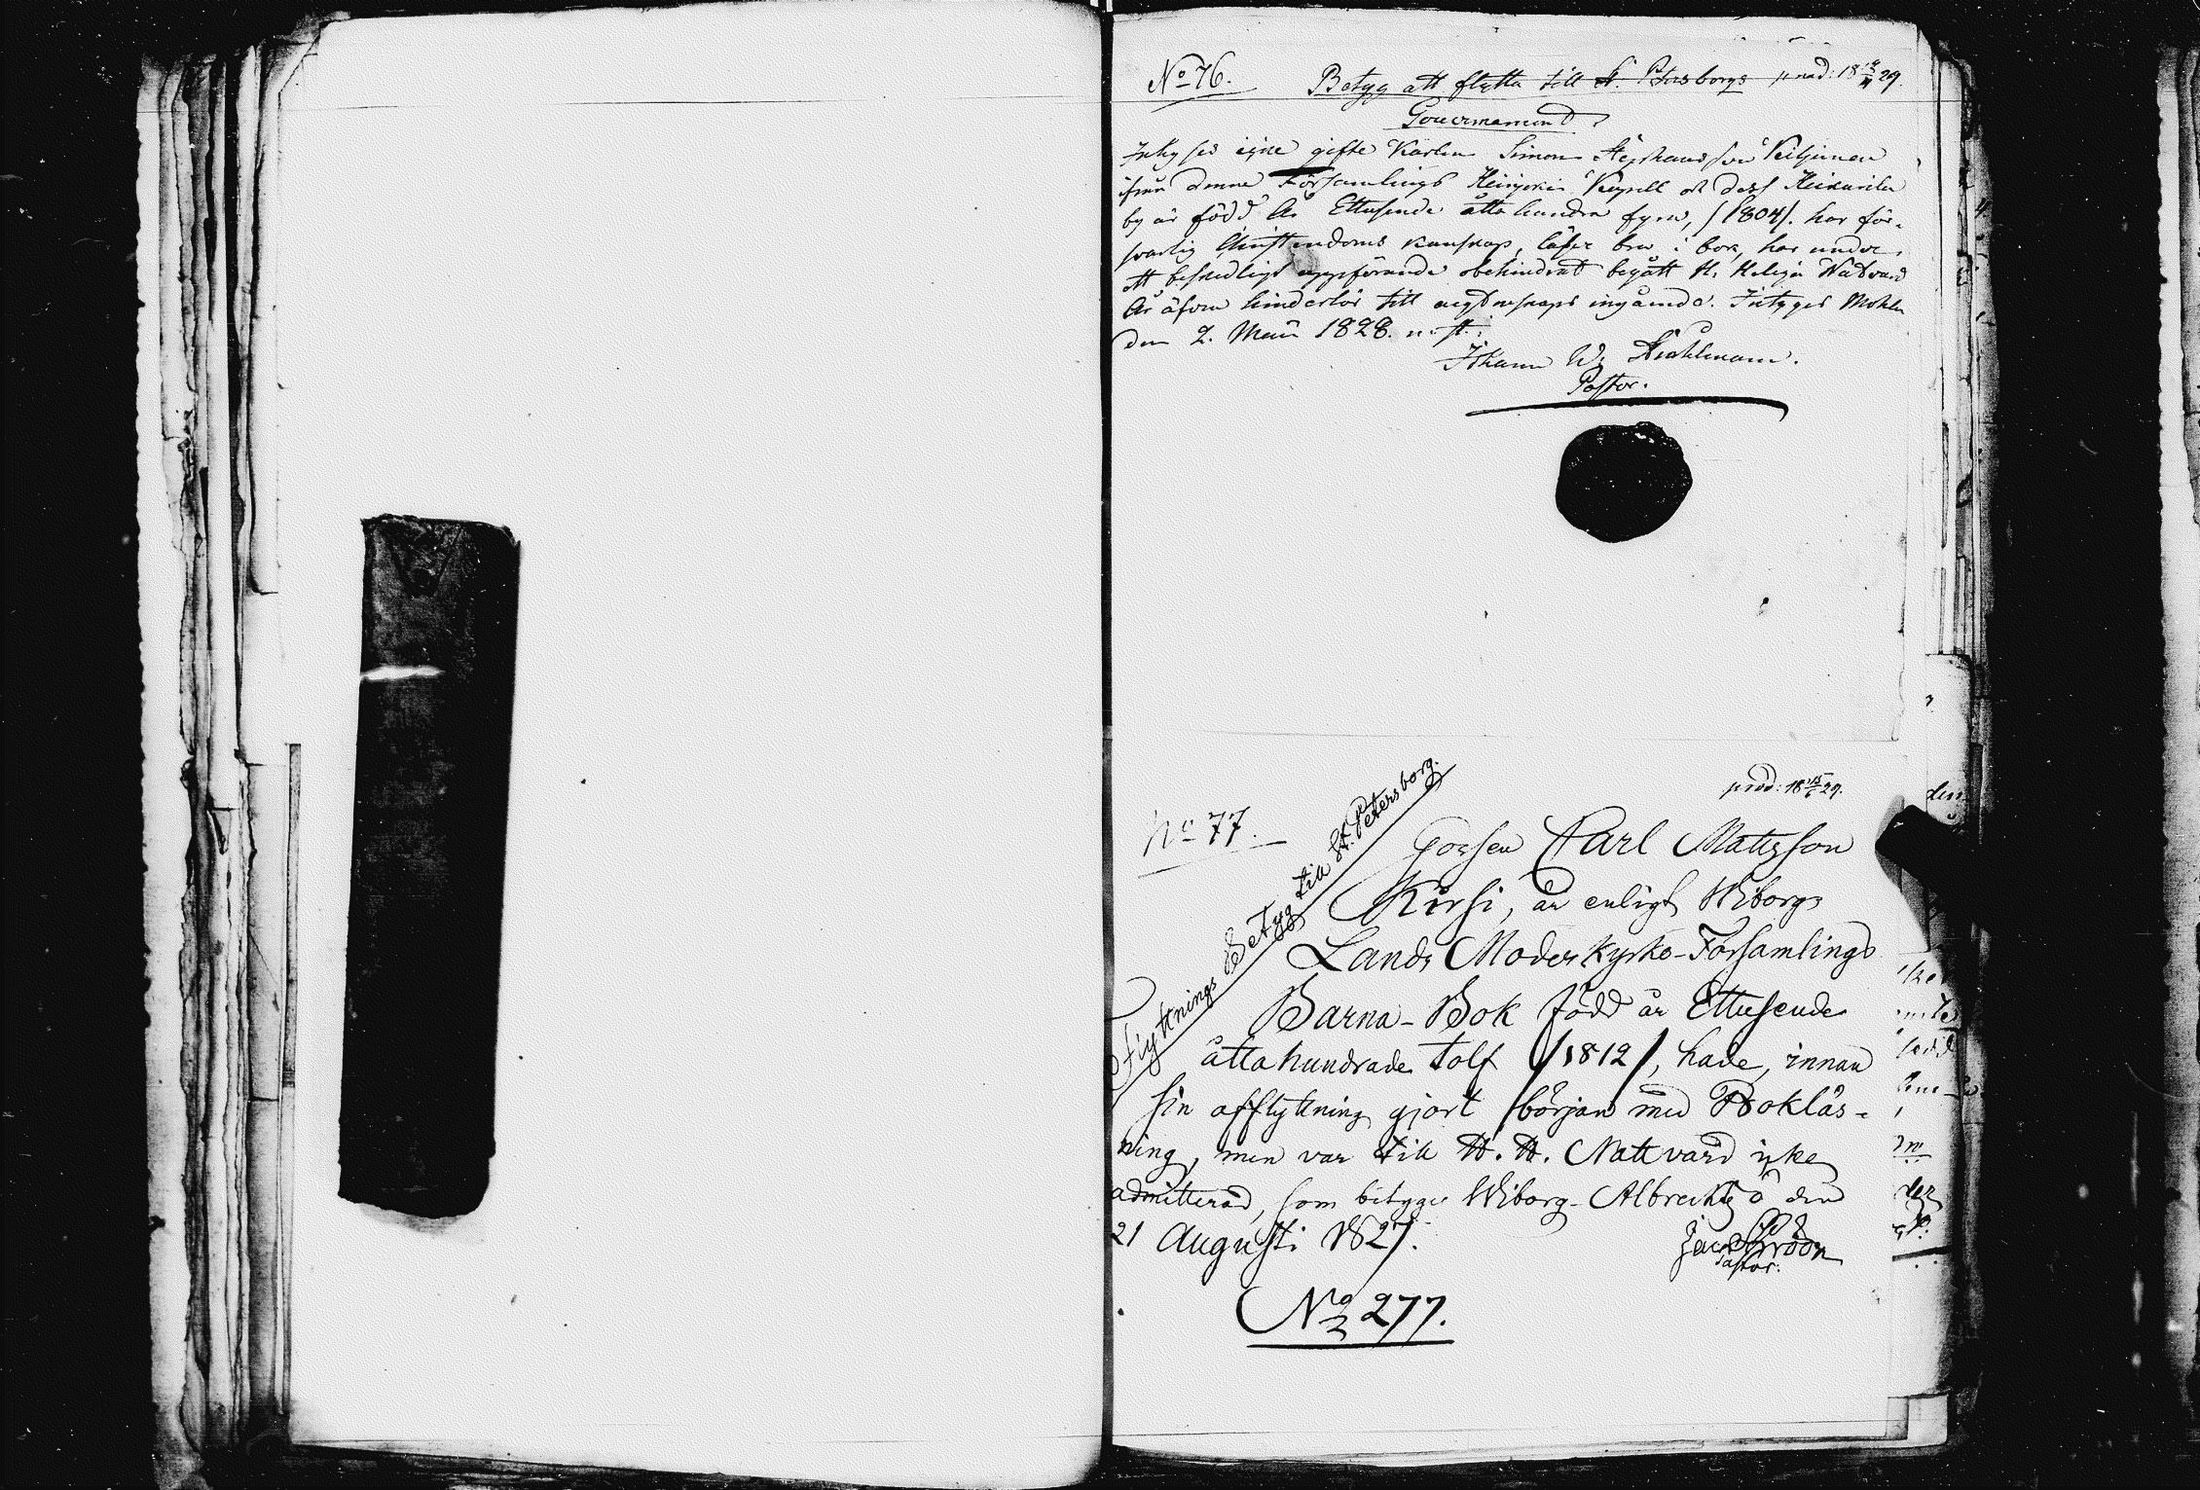 No 76. Betyg att flytta till St. Petersborgs prod: 18 29.
Gouvernement
gifte Karlen Simon Stephansson Kiljunen
ifrån denne Församlings Kapell och dess
by är född år Ettusende åtta hundra fyra, /1804/. har för-
svarlig Christendoms kunskap, läser bra i bok, har under
ett beskedligt uppförande obehindrat begått H. Heliga Nattvard
Är äfven hinderlös till ägtenskaps ingående. Intygas Mohla
den 2. Maii 1828. n. st.
Johann W.
Pastor.
prod: 18 15/6 29.
No 77.
Flyttnings Betyg till St. Petersborg.
Gossen Carl Mattsson
Kirsi, är enligt Wiborgs
Lands Moderkyrko-Församlings
Barna-Bok född år Ettusende
åttahundrade tolf /1812/, hade, innan
sin afflyttning gjort början med Bokläs-
ning, men var till H. H. Nattvard icke
admitterad, som betygar Wiborg-Albrechts ö den
21 Augusti 1827.
Pastor.
No 277.